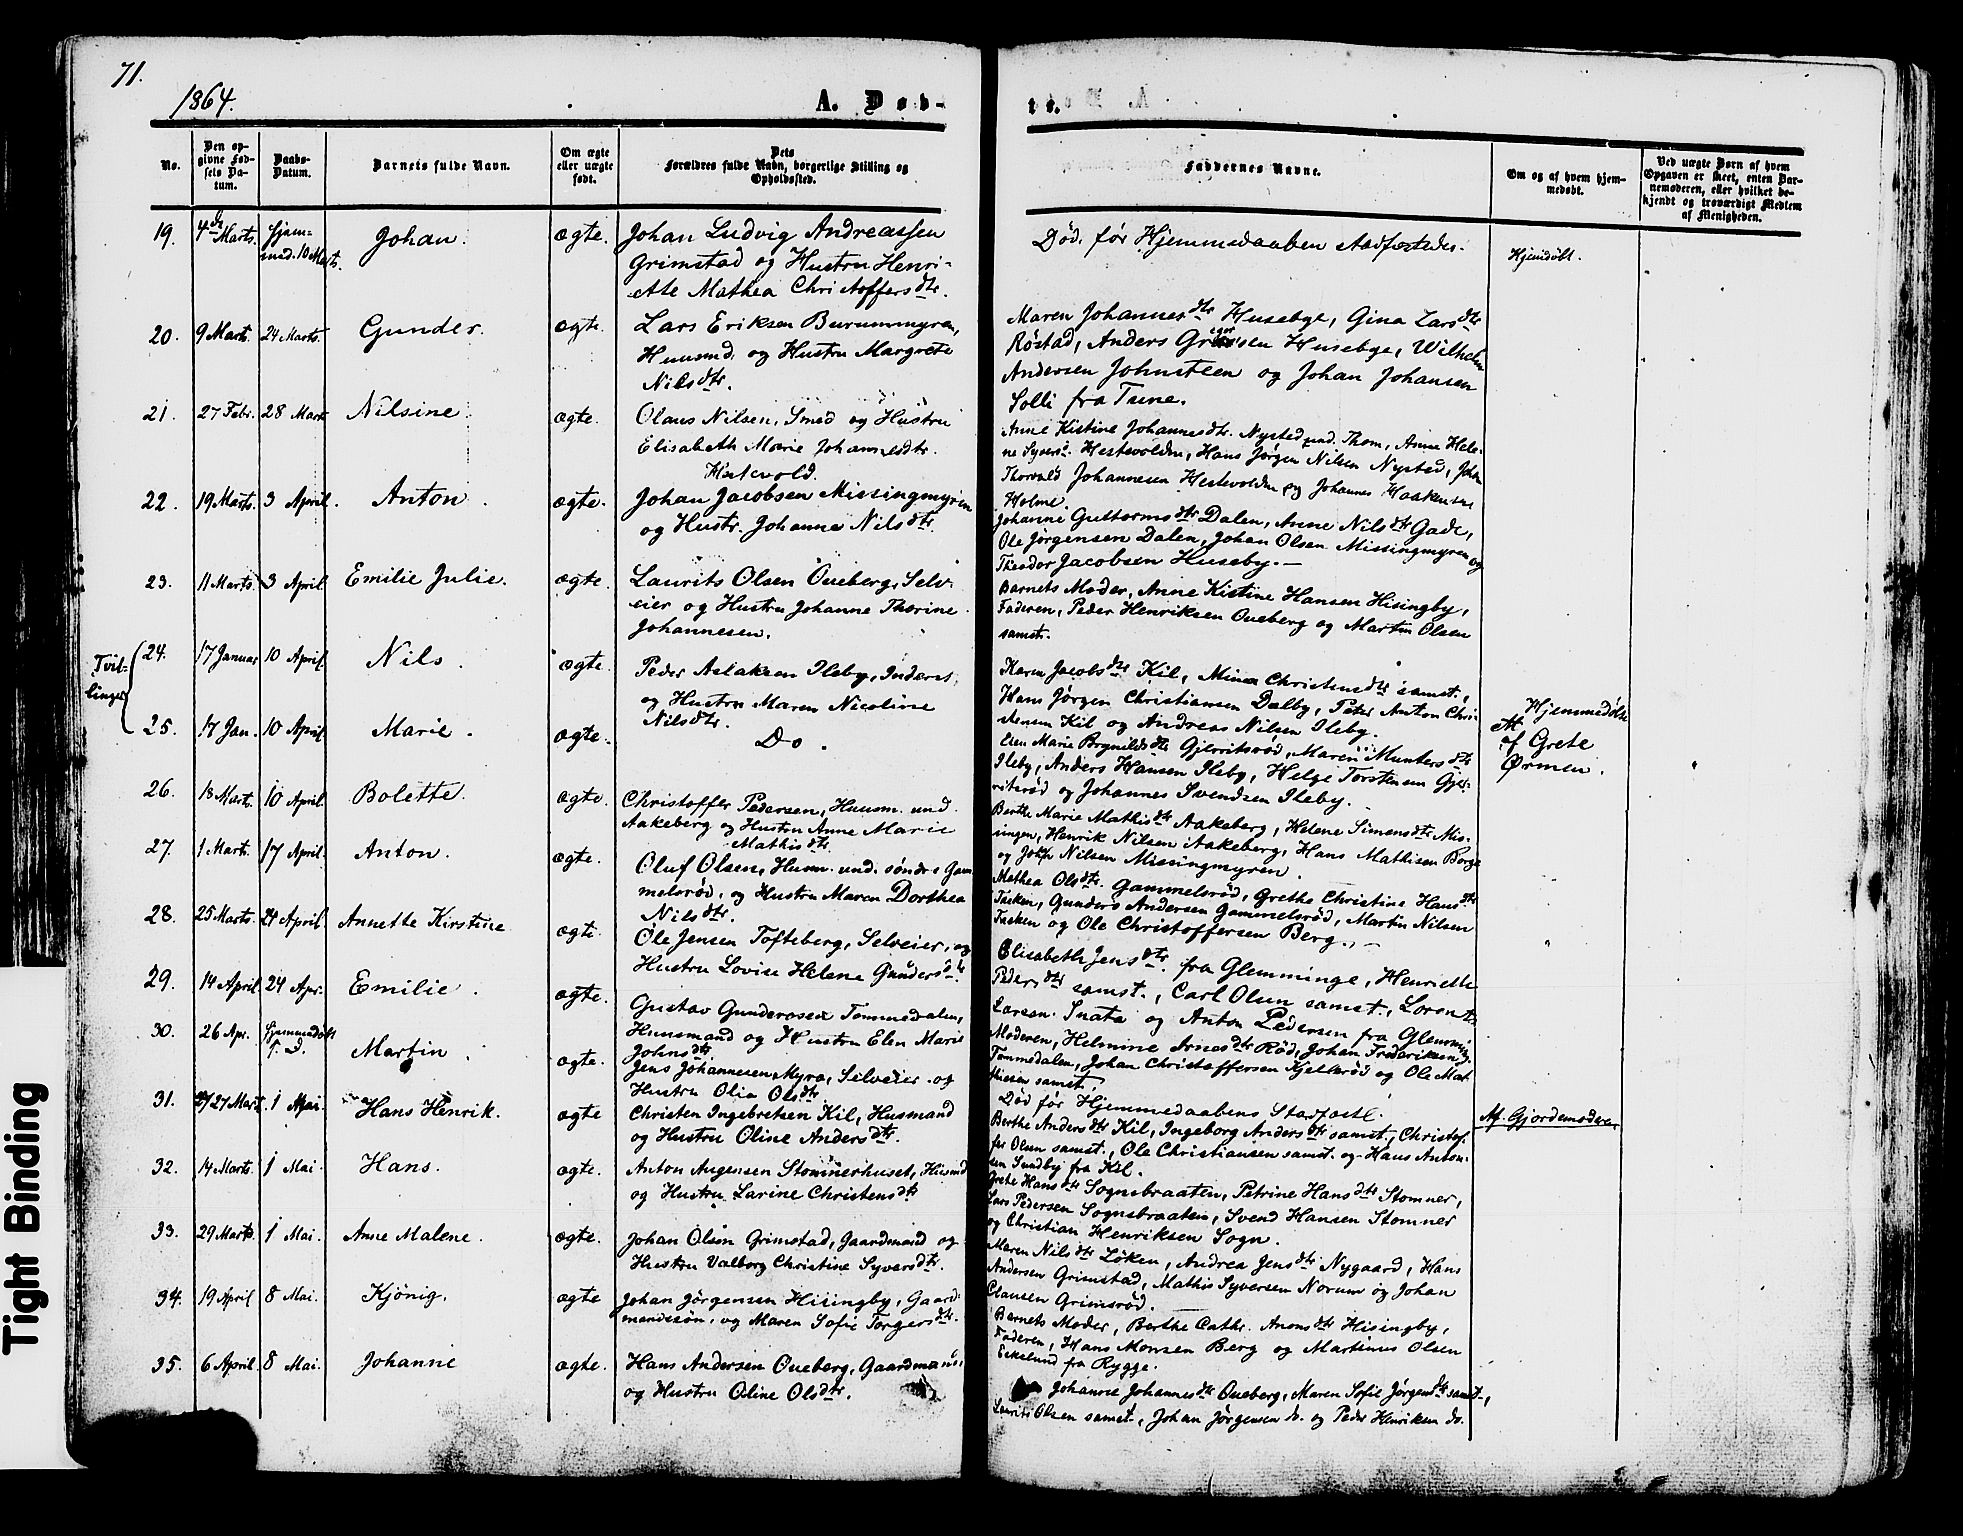 71.
1864.
A. Døb-
te.
No.
Den op-
givne Fød-
sels Da-
tum.
Daabs-
Datum.
Barnets fulde Navn.
Om ægte
eller uægte
født.
Dets
Forældres fulde Navn, borgerlige Stilling og
Opholdssted.
Faddernes Navne.
Om og af hvem hjem-
medøbt.
Ved uægte Børn af hvem
Opgaven er skeet, enten Bar-
nemoderen, eller hvilket be-
kjendt og troværdigt Medlem
af Menigheden.
19. 4de Marts. Hjem-
med. 10 Marts.
Johan. ægte.
Johan Ludvig Andreassen
Grimstad og Hustru Henri-
ette Mathea Christoffersdtr.
Død før Hjemmedaaben
Hjemdøbt.
20. 9 Marts. 24 Marts. Gunder. ægte.
Lars Eriksen Burummyren,
Huusmd. og Hustru Margrete
Nilsdtr.
Maren Johannesdtr Husebye, Gina Larsdtr
Røstad, Anders Husebye, Wilhelm
Andersen Johnsteen og Johan Johansen
Solli fra Tune.
21. 27 Febr. 28 Mart Nilsine. ægte.
Olaus Nilsen, Smed og Hustru
Elisabeth Marie Johannesdtr.
Anne Kistine Johannesdtr. Nysted und. Thom, Anne Hele-
ne Hestevolden, Hans Jørgen Nilsen Nystad, Johan
Thorvald Johannesen Hestvolden og Johannes Haakensen
Holme.
22. 19 Marts. 3 April. Anton. ægte.
Johan Jacobsen Missingmyren
og Hustr. Johanne Nilsdtr.
Johanne Guttormsdtr Dalen, Anne Nilsdtr Gade,
Ole Jørgensen Dalen, Johan Olsen Missingmyren og
Theodor Jacobsen Huseby.—
23. 11 Marts. 3 April Emilie Julie. ægte.
Laurits Olsen Oueberg, Selv-
eier og Hustru Johanne Thorine
Johannesen.
Barnets Moder, Anne Kistine Hansen Hisingby,
Faderen, Peder Henriksen Oueberg og Martin Olsen
samst.
Tvil-
linger
24. 17 Januar 10 April Nils. ægte.
Peder Aslaksen Ileby, Inderst,
og Hustru Maren Nicoline
Nilsdtr.
Karen Jacobsdtr Kil, Mina Christensdtr samst.,
Hans Jørgen Christiansen Dalby, Peter Anton Chri-
stensen Kil og Andreas Nilsen Ileby.
25. 17 Jan. 10 April Marie. ægte. Do.
Elen Marie Brynildsdtr Gjerritsrød, Maren Muntersdtr
Ileby, Anders Hansen Ileby, Helge Torstensen Gjer-
ritsrød og Johannes Svendsen Ileby.
Hjemmedøbt
af Grete
Ørmen.
26. 18 Mart. 10 April Bolette. ægte.
Christoffer Pedersen, Huusm. und.
Aakeberg og Hustru Anne Marie
Mathisdtr.
Berthe Marie Mathisdtr Aakeberg, Helene Simensdtr Mis-
singen, Henrik Nilsen Aakeberg, Hans Mathisen Borge
og Nilsen Missingmyren.
27. 1 Mart. 17 April. Anton. ægte.
Oluf Olsen, Huusm. und. søndre Gam-
melsrød, og Hustru Maren Dorthea
Nilsdtr.
Mathea Olsdtr. Gammelsrød, Grethe Christine Hansdtr
Tasken, Gunders Andersen Gammelsrød, Martin Nilsen
Tasken og Ole Christoffersen Berg.—
28. 25 Marts. 24 April Annette Kirstine ægte.
Ole Jensen Tofteberg, Selveier, og
Hustru Lovise Helene Gundersdtr
Elisabeth Jensdtr. fra Glemminge, Henriette
Pedersdtr samst., Carl Olsen samst., Lorents
Larsen Snata og Anton Pedersen fra Glemming.
29. 14 April 24 Apr. Emilie. ægte.
Gustav Gunderosen Tommedalen,
Huusmand og Hustru Elen Marie
Johnsdtr.
Moderen, Helmine Arnesdtr Rød, Johan Frederiksen
Tommedalen, Johan Christoffersen Kjellerød og Ole Mat-
hisen samst.
30. 26 Apr. Hjemmedøbt
s. D.
Martin. ægte.
Jens Johannesen Myra, Selveier og
Hustru Olia Olsdtr
Død før Hjemmedaabens Stadfæstl.
Af Gjordemoderen
31. 27 Mart. 1 Mai. Hans Henrik. ægte
Christen Ingebretsen Kil, Husmand
og Hustru Oline Andersdtr.
Berthe Andersdtr Kil, Ingeborg Andersdtr samst., Christof-
fer Olsen samst., Ole Christiansen samst. og Hans Anton-
sen Sundby fra Kil.
32. 14 Marts. 1 Mai Hans. ægte.
Anton Augensen Stomnerhuset, Husmd
og Hustru Larine Christensdtr
Grete Hansdtr Sognsbraaten, Petrine Hansdtr Stomner,
Lars Pedersen Sognsbraaten, Svend Hansen Stomner
og Christian Henriksen Sogn.
33. 29 Marts. 1 Mai. Anne Malene. ægte.
Johan Olsen Grimstad, Gaardmand og
Hustru Valborg Christine Syversdtr.
Maren Nilsdtr Løken, Andrea Jensdtr Nygaard, Hans
Andersen Grimstad, Mathis Syversen Norum og Johan
Clausen Grimsrød.
34. 19 April 8 Mai. Kjønig. ægte
Johan Jørgensen Hisingby, Gaard-
mandssøn, og Maren Sofie Torgersdtr.
Barnets Moder, Berthe Cathr. Hisingby,
Faderen, Hans Monsen Berg og Martinus Olsen
Eekelund fra Rygge.
35. 6 April 8 Mai. Johanne ægte.
Hans Andersen Oueberg, Gaardmand,
og Hustru Oline Olsdtr.
Johanne Johannesdtr Oueberg, Maren Sofie Jørgensdtr samst.,
Laurits Olsen samst., Johan Jørgensen do. og Peder Henriksen do.
Tight Binding